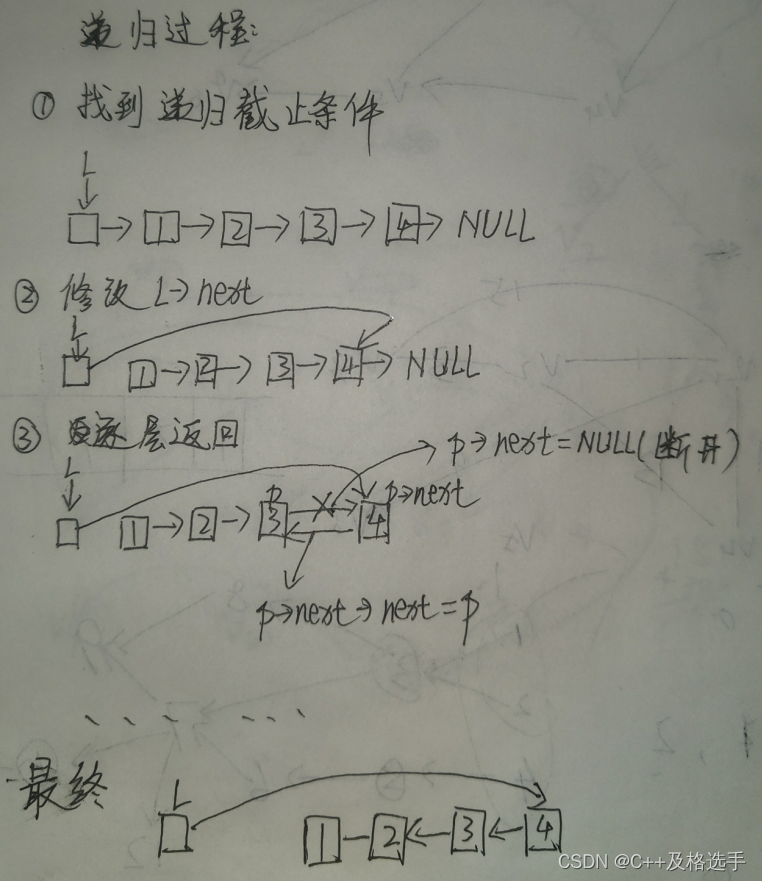 递归过程:
① 找到递归截止条件
L
→ 1 → 2 → 3 → 4 → NULL
② 修改 L→next
L
1 → 2 → 3 → 4 → NULL
③ 逐层返回
p→next=NULL(断开)
L
p
p→next
1 → 2 → 3 4
p→next→next=p
...... 
最终
L
1 — 2 ← 3 ← 4
CSDN @C++及格选手